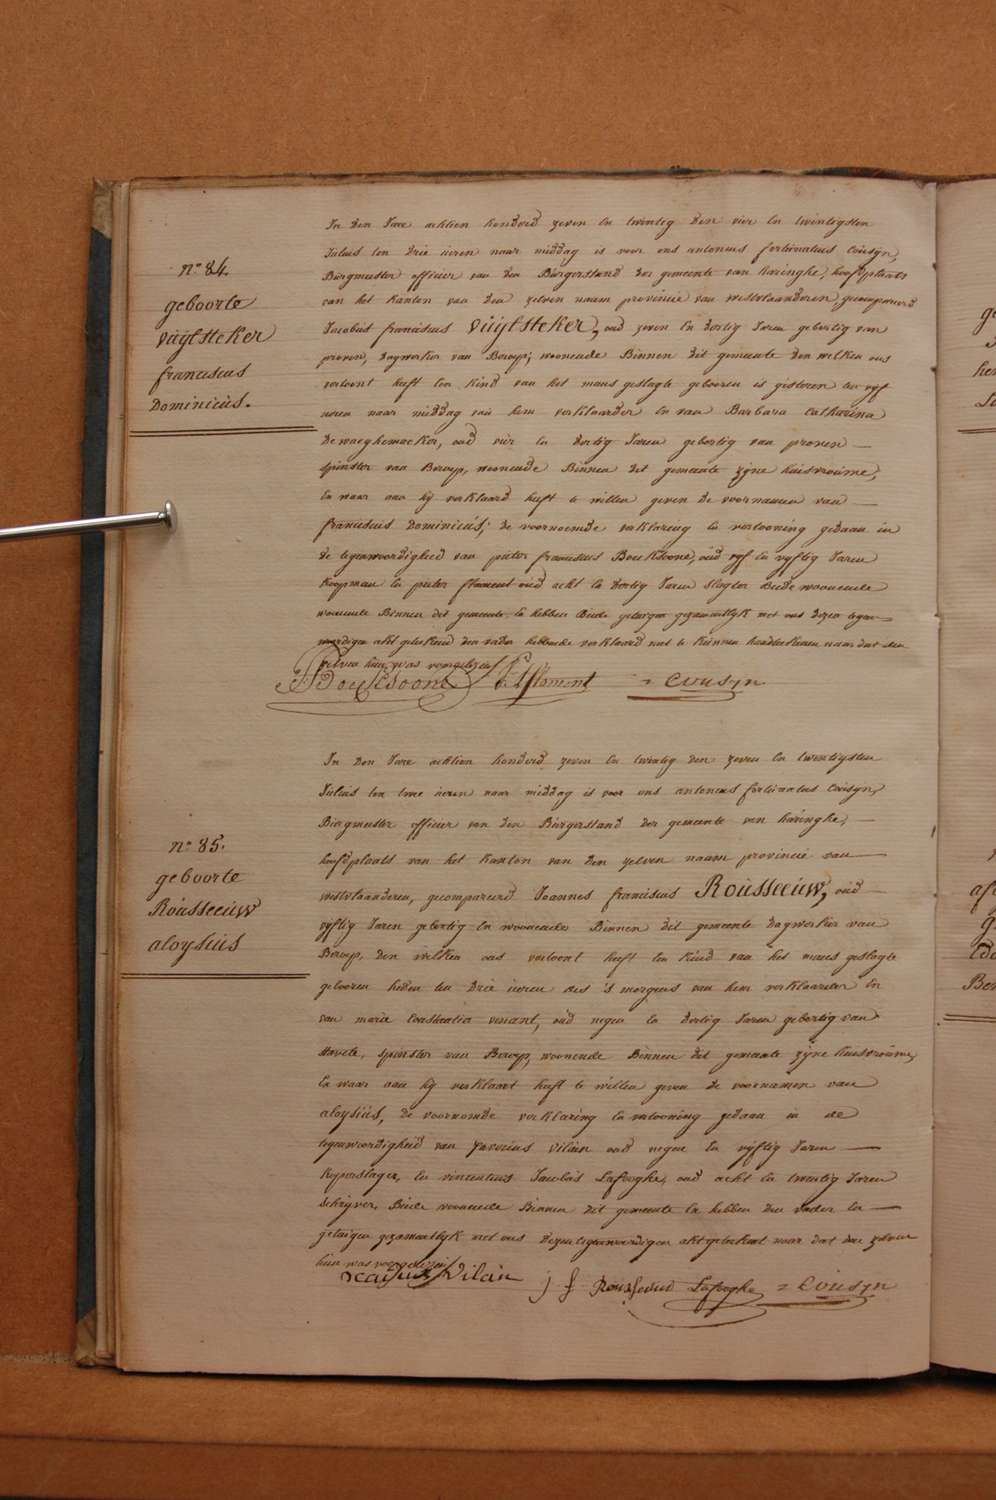 n.° 84.
geboorte
vuÿlsteker
franciscus
Dominicus.
In den Jare achtien honderd zeven en twintig den vier en twintigsten
Julius ten drie uren naer middag is voor ons antonius fortunatus Cousyn,
Burgmeester officier van den Burgerstand der gemeente van haringhe, hoofdplaats
van het Kanton van den zelven naem provincie van westvlaanderen, gecompareerd
Jacobus franciscus vuÿlsteker, oud zeven en dertig Jaren gebortig van
proven, dagwerker van Beroep, woonende Binnen dit gemeente den welken ons
vertoont heeft een kind van het mans geslagte geboren is gisteren ten vyf
uren naar middag van hem verklaarder en van Barbara Catharina
Dewaeghemaeker, oud vier en dertig Jaren gebortig van proven
spinster van Beroep, woonende Binnen dit gemeente zÿne huisvrouwe,
en waar aan hy verklaard heeft te willen geven de voornamen van
franciscus Dominicus; de voornoemde verklaring en vertooning gedaan in
de tegenwoordigheid van pieter franciscus Boucksoone, oud vyf en vyftig Jaren
Koopman en pieter flament oud acht en dertig Jaren slagter Beide woonende
woonende Binnen dit gemeente en hebben Beide getuigen gezamentlyk met ons dezen tegen
wordigen akt geteekend den vader hebbende verklaard niet te kunnen handteekenen naar dat den
zelven hun was voorgelezen
Boucksoone P. J. flament Cousyn
n.° 85.
geboorte
Rousseeuw
aloysius
In den Jare achtien honderd zeven en twintig den zeven en twintigsten
Julius ten twee uren naar middag is voor ons antonius fortunatus Cousyn,
Burgmeester officier van den Burgerstand der gemeente van haringhe,
hoofdplaats van het Kanton van den zelven naam provincie van
westvlaanderen, gecompareerd Joannes franciscus Rousseeuw, oud
vyftig Jaren gebortig en woonende Binnen dit gemeente Dagwerker van
Beroep, den welken ons vertoont heeft een kind van het mans geslagte
geboren heden ten drie uren des 's morgens van hem verklaarder en
van marie Constantia vincent, oud negen en dertig Jaren gebortig van
stavele, spinster van Beroep, woonende Binnen dit gemeente zÿne huisvrouwe,
en waar aan hy verklaart heeft te willen geven de voornamen van
aloysius, de voornoemde verklaring en vertooning gedaan in de
tegenwoordigheid van Vilain oud negen en vyftig Jaren
Koperslager, en vincentius Jacobus Lafeughe, oud acht en twintig Jaren
schrijver, Beide woonende Binnen dit gemeente en hebben den vader en
getuigen gezamentlyk met ons dezen tegenwoordigen akt geteekent naar dat den zelven
hun was voorgelezen
Vilain j f Rousseeuw Lafeughe Cousyn